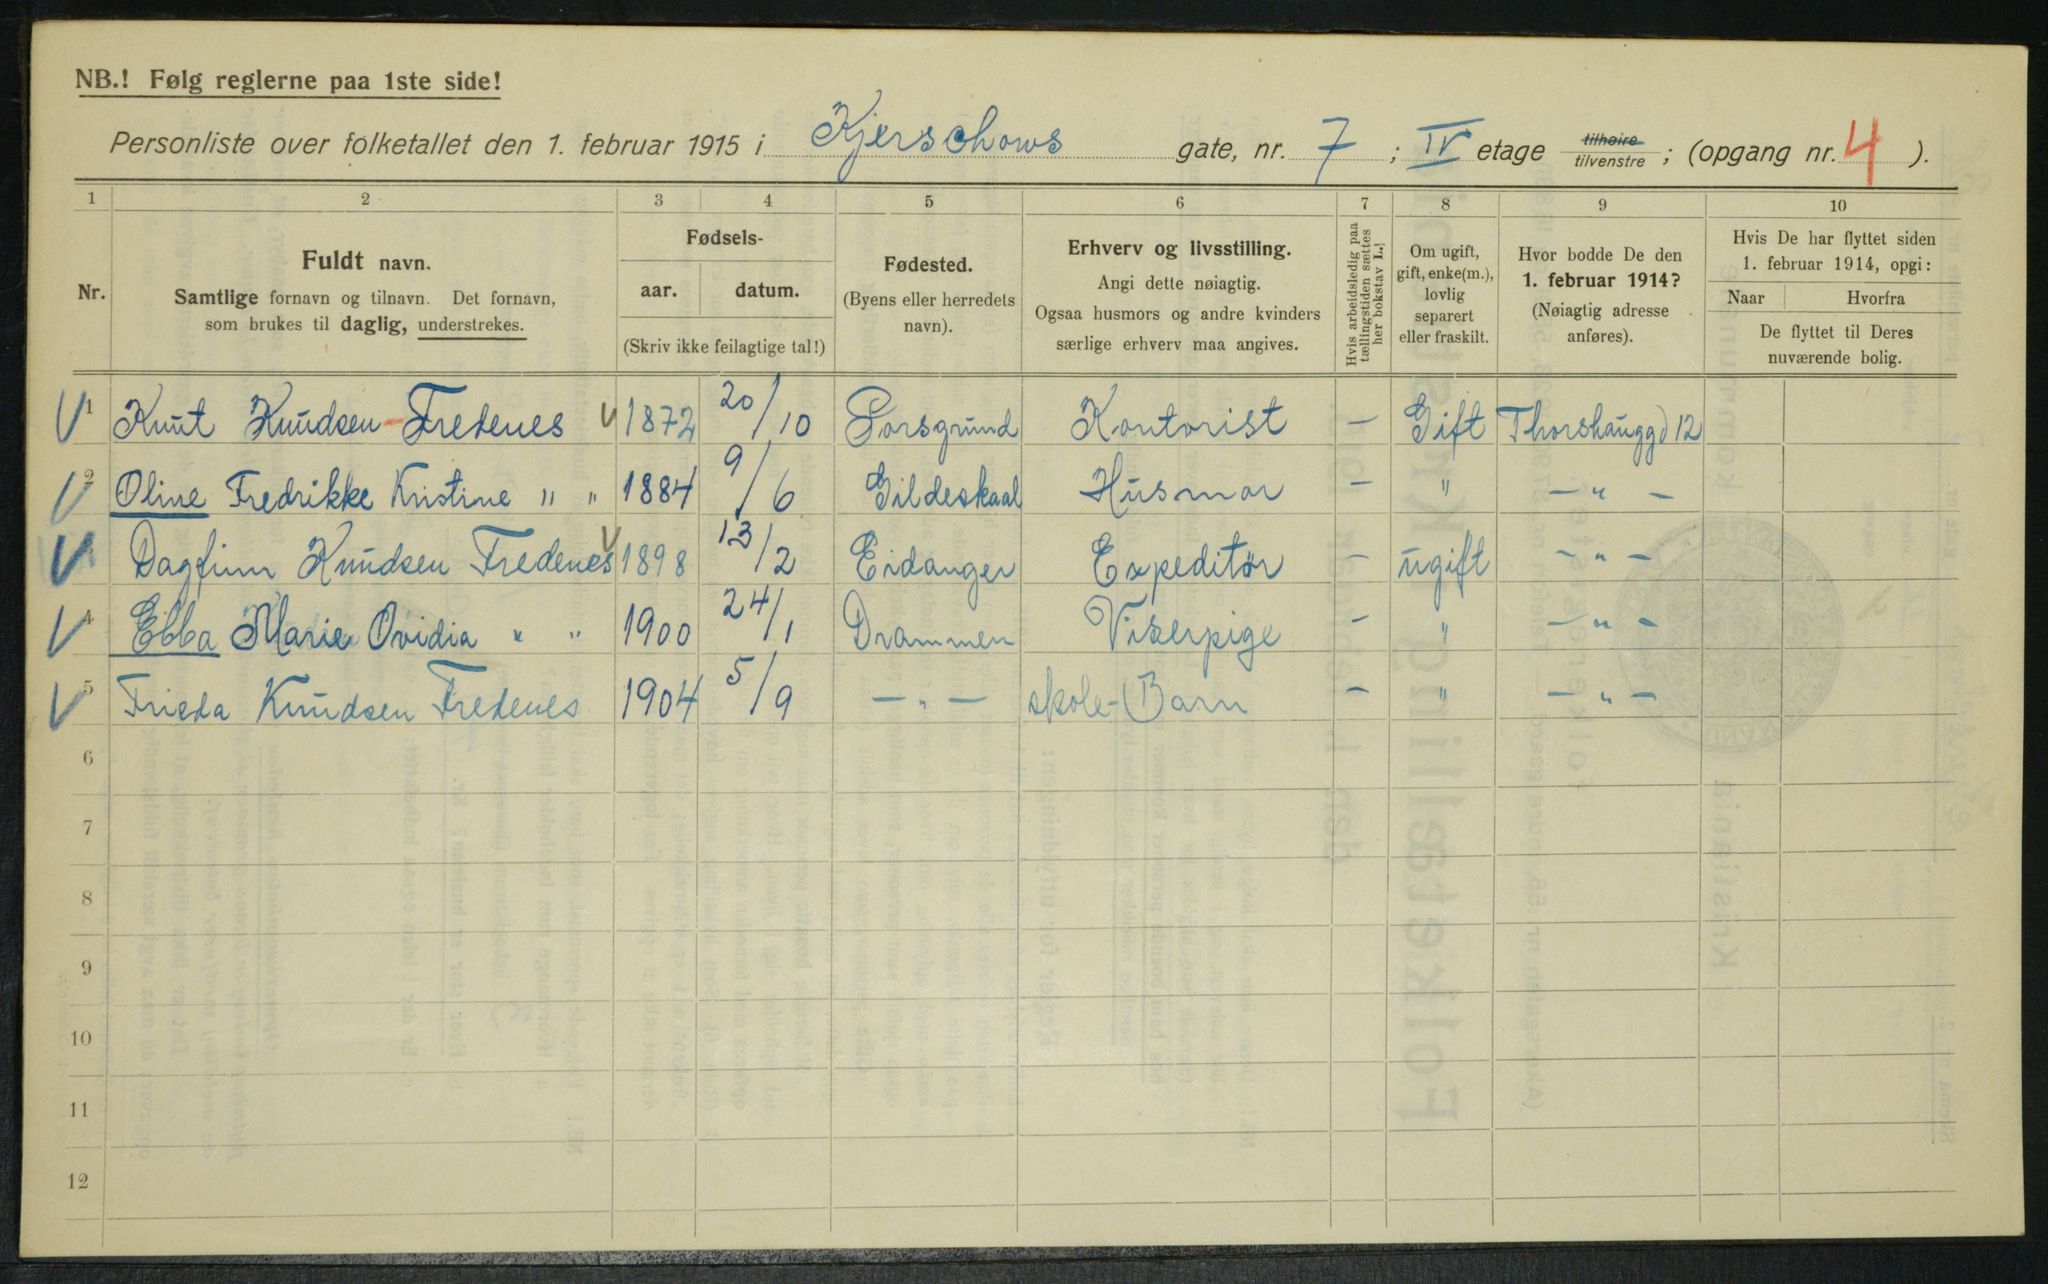 NB.! Følg reglerne paa 1ste side!
Personliste over folketallet den 1. februar 1915 i Kjerschows gate, nr. 7 ; IV etage tilhøire tilvenstre ; (opgang nr. 4 ).
1 2 3 4 5 6 7 8 9 10
Nr.
Fuldt navn.
Samtlige fornavn og tilnavn. Det fornavn,
som brukes til daglig, understrekes.
Fødsels-
aar. datum.
(Skriv ikke feilagtige tal!)
Fødested.
(Byens eller herredets
navn).
Erhverv og livsstilling.
Angi dette nøiagtig.
Ogsaa husmors og andre kvinders
særlige erhverv maa angives.
Hvis arbeidsledig paa
tællingstiden sættes
her bokstav L.)
Om ugift,
gift, enke(m.),
lovlig
separert
eller fraskilt.
Hvor bodde De den
1. februar 1914?
(Nøiagtig adresse
anføres).
Hvis De har flyttet siden
1. februar 1914, opgi:
Naar Hvorfra
De flyttet til Deres
nuværende bolig.
1 Knut Knudsen Fredenes 1872 20/10 Porsgrund Kontorist — Gift Thorshauggd 12
2 Oline Fredrikke Kristine " " 1884 9/6 Gildeskaal Husmor — " — " —
3 Dagfinn Knudsen Fredenes 1898 13/2 Eidanger Expeditør — ugift — " —
4 Ebba Marie Ovidia " " 1900 24/1 Drammen Viserpige — " — " —
5 Frieda Knudsen Fredenes 1904 5/9 — " — skole-Barn — " — " —
6
7
8
9
10
11
12